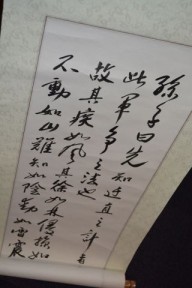 孫子曰先知迂直之計者
此軍争之法也
故其疾如風其徐如林侵掠如
不動如山難知如陰動如雷震